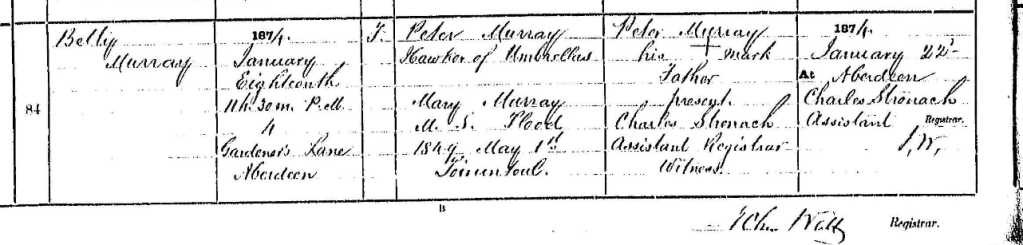 84
Betty
Murray
1874.
January
Eighteenth
11h. 30m. P.M.
4
Gardener's Lane
Aberdeen
F.
Peter Murray
Hawker of Umbrellas
Mary Murray
M. S. Flood
1849, May 1st
Tomintoul.
Peter Murray
his + mark
Father
present.
Charles Stronach
Assistant Registrar
Witness.
1874.
January 22d
At Aberdeen
Charles Stronach
Assistant Registrar.
J. W.
B
Watt Registrar.